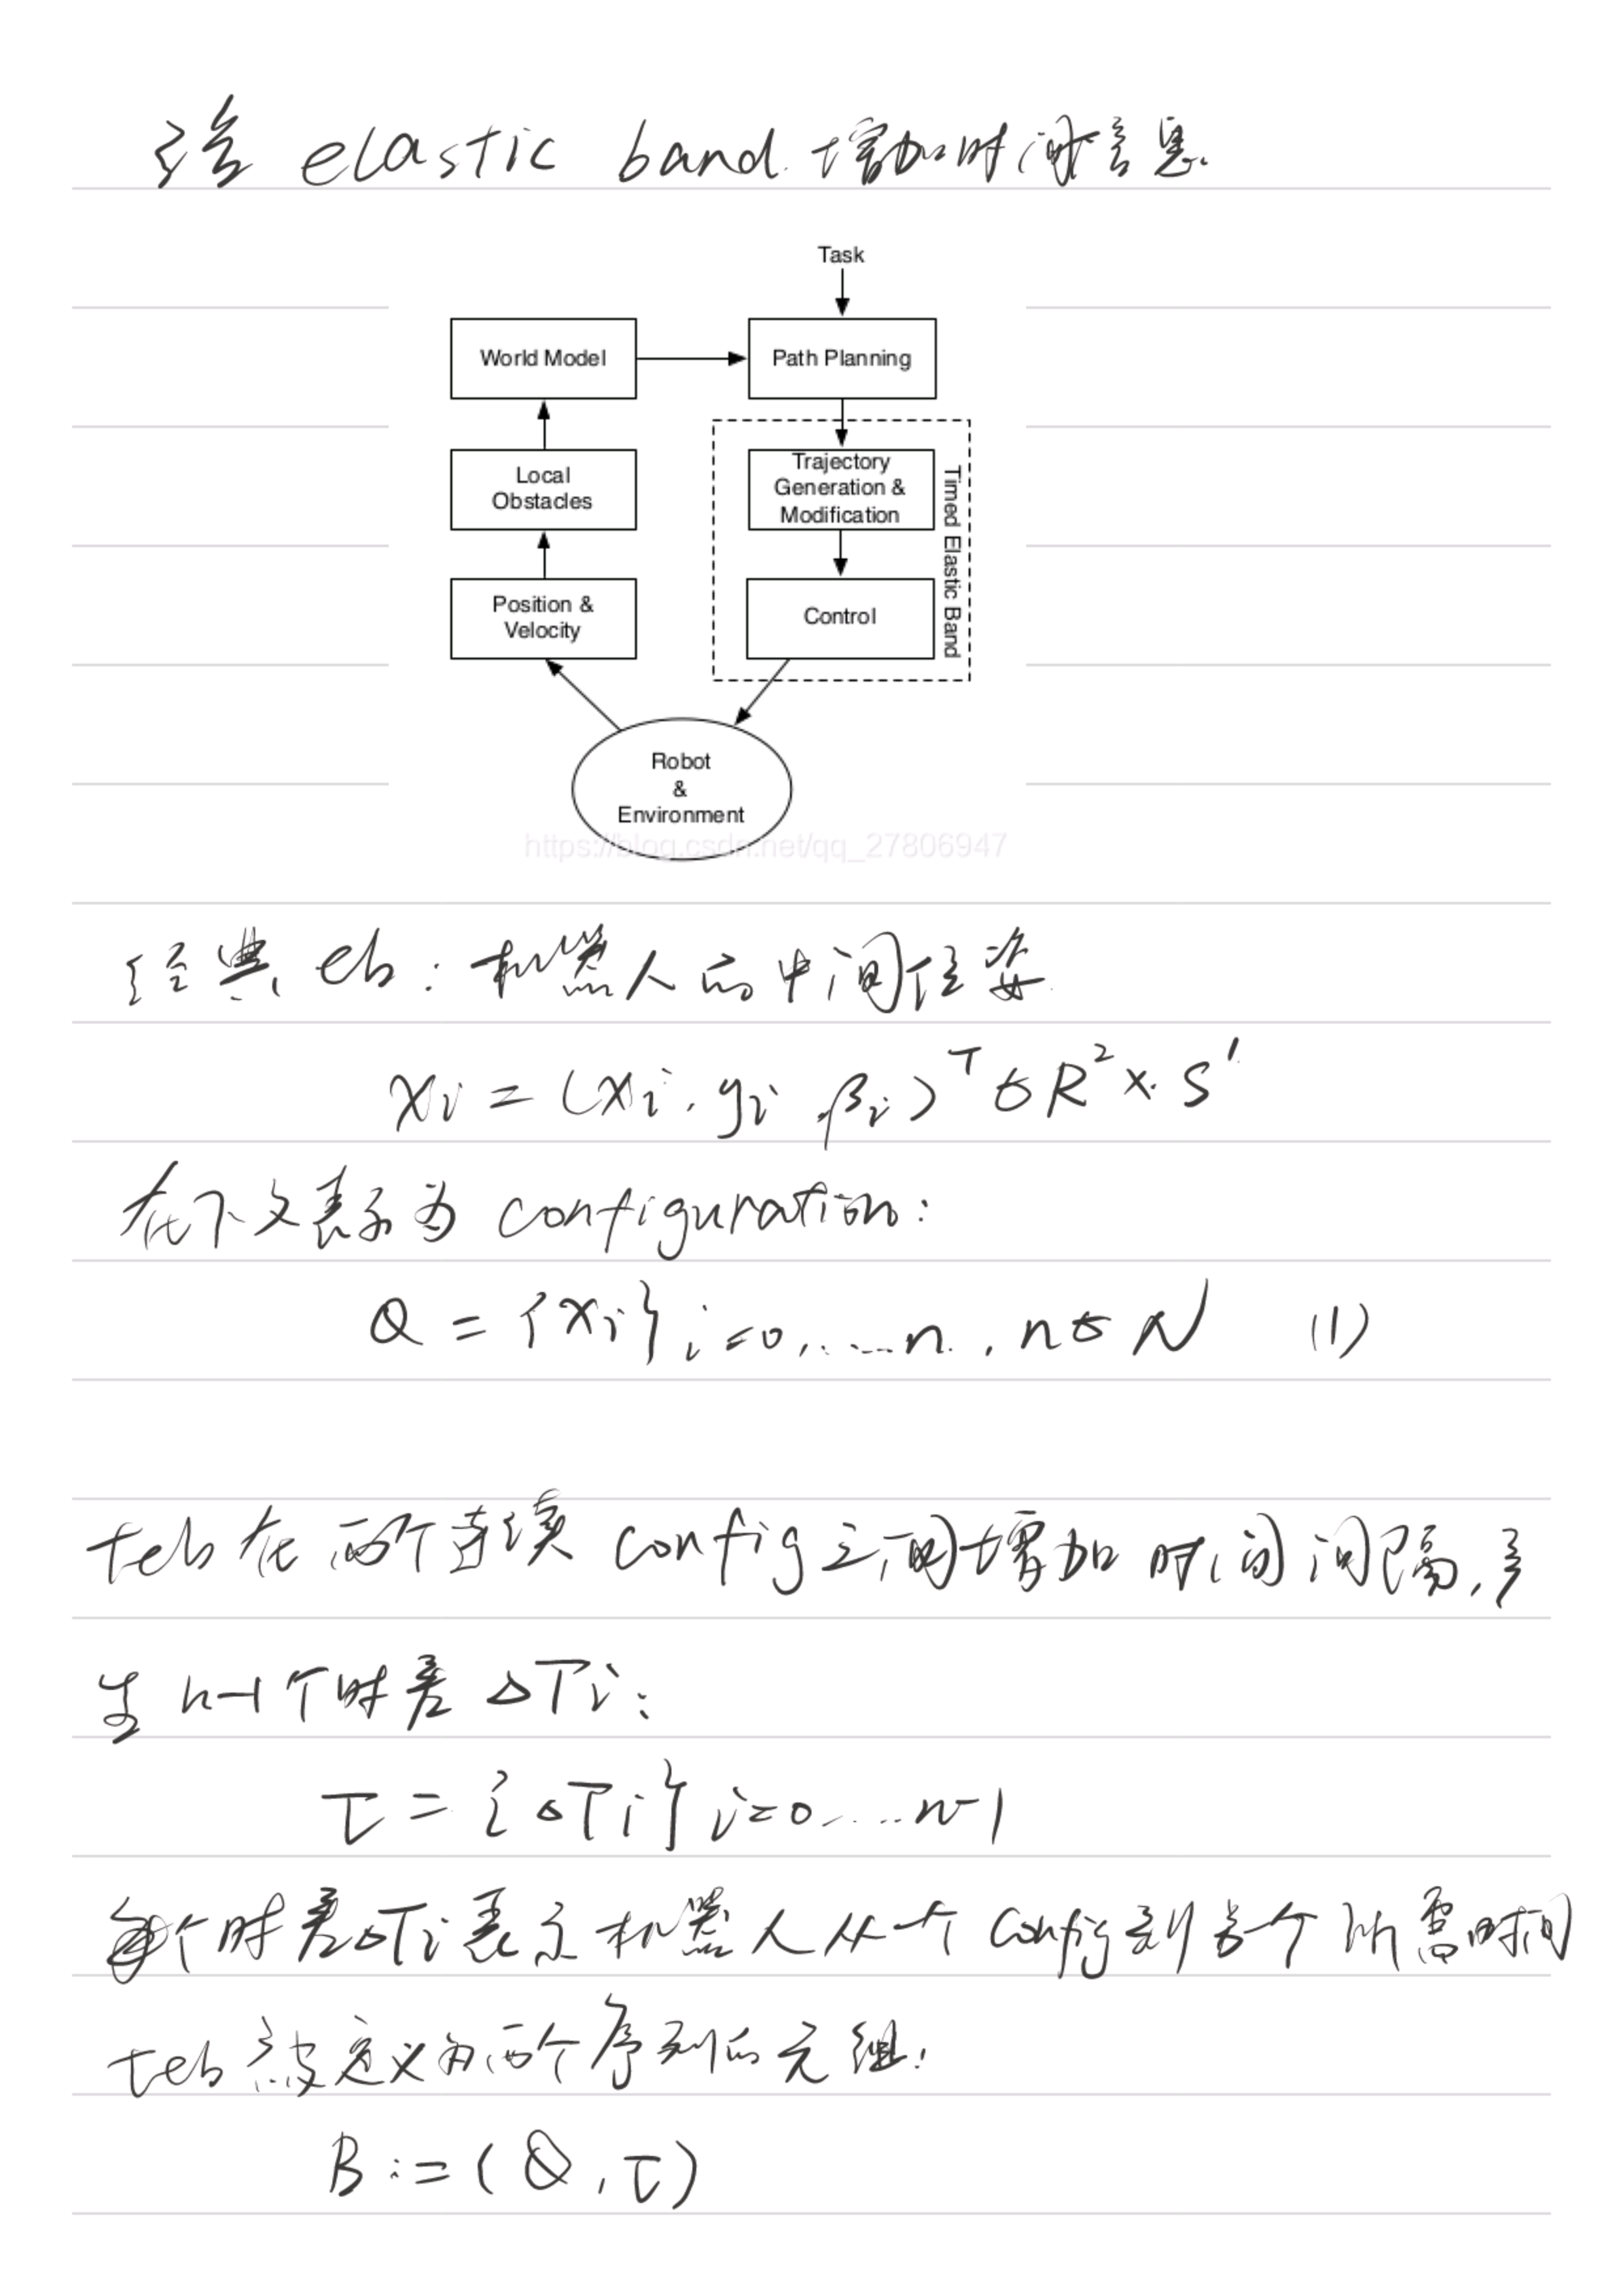 给 elastic band. 增加时间信息.
Task
World Model
Path Planning
Local
Obstacles
Trajectory
Generation &
Modification
Timed Elastic Band
Position &
Velocity
Control
Robot
&
Environment
https://blog.csdn.net/qq_27806947
经典 eb: 机器人的中间位姿.
Xi = (Xi, yi, βi)ᵀ ∈ R² × S¹
在下文表示为 configuration:
Q = {Xi} i=0,.....n., n∈N (1)
teb 在两个连续 config 之间增加时间间隔, 产
生 n-1个时差 ΔTi:
τ = {ΔTi} i=0.....n-1
每个时差ΔTi表示机器人从一个 Config到另一个所需时间
teb 被定义为两个序列的元组:
B := (Q, τ)